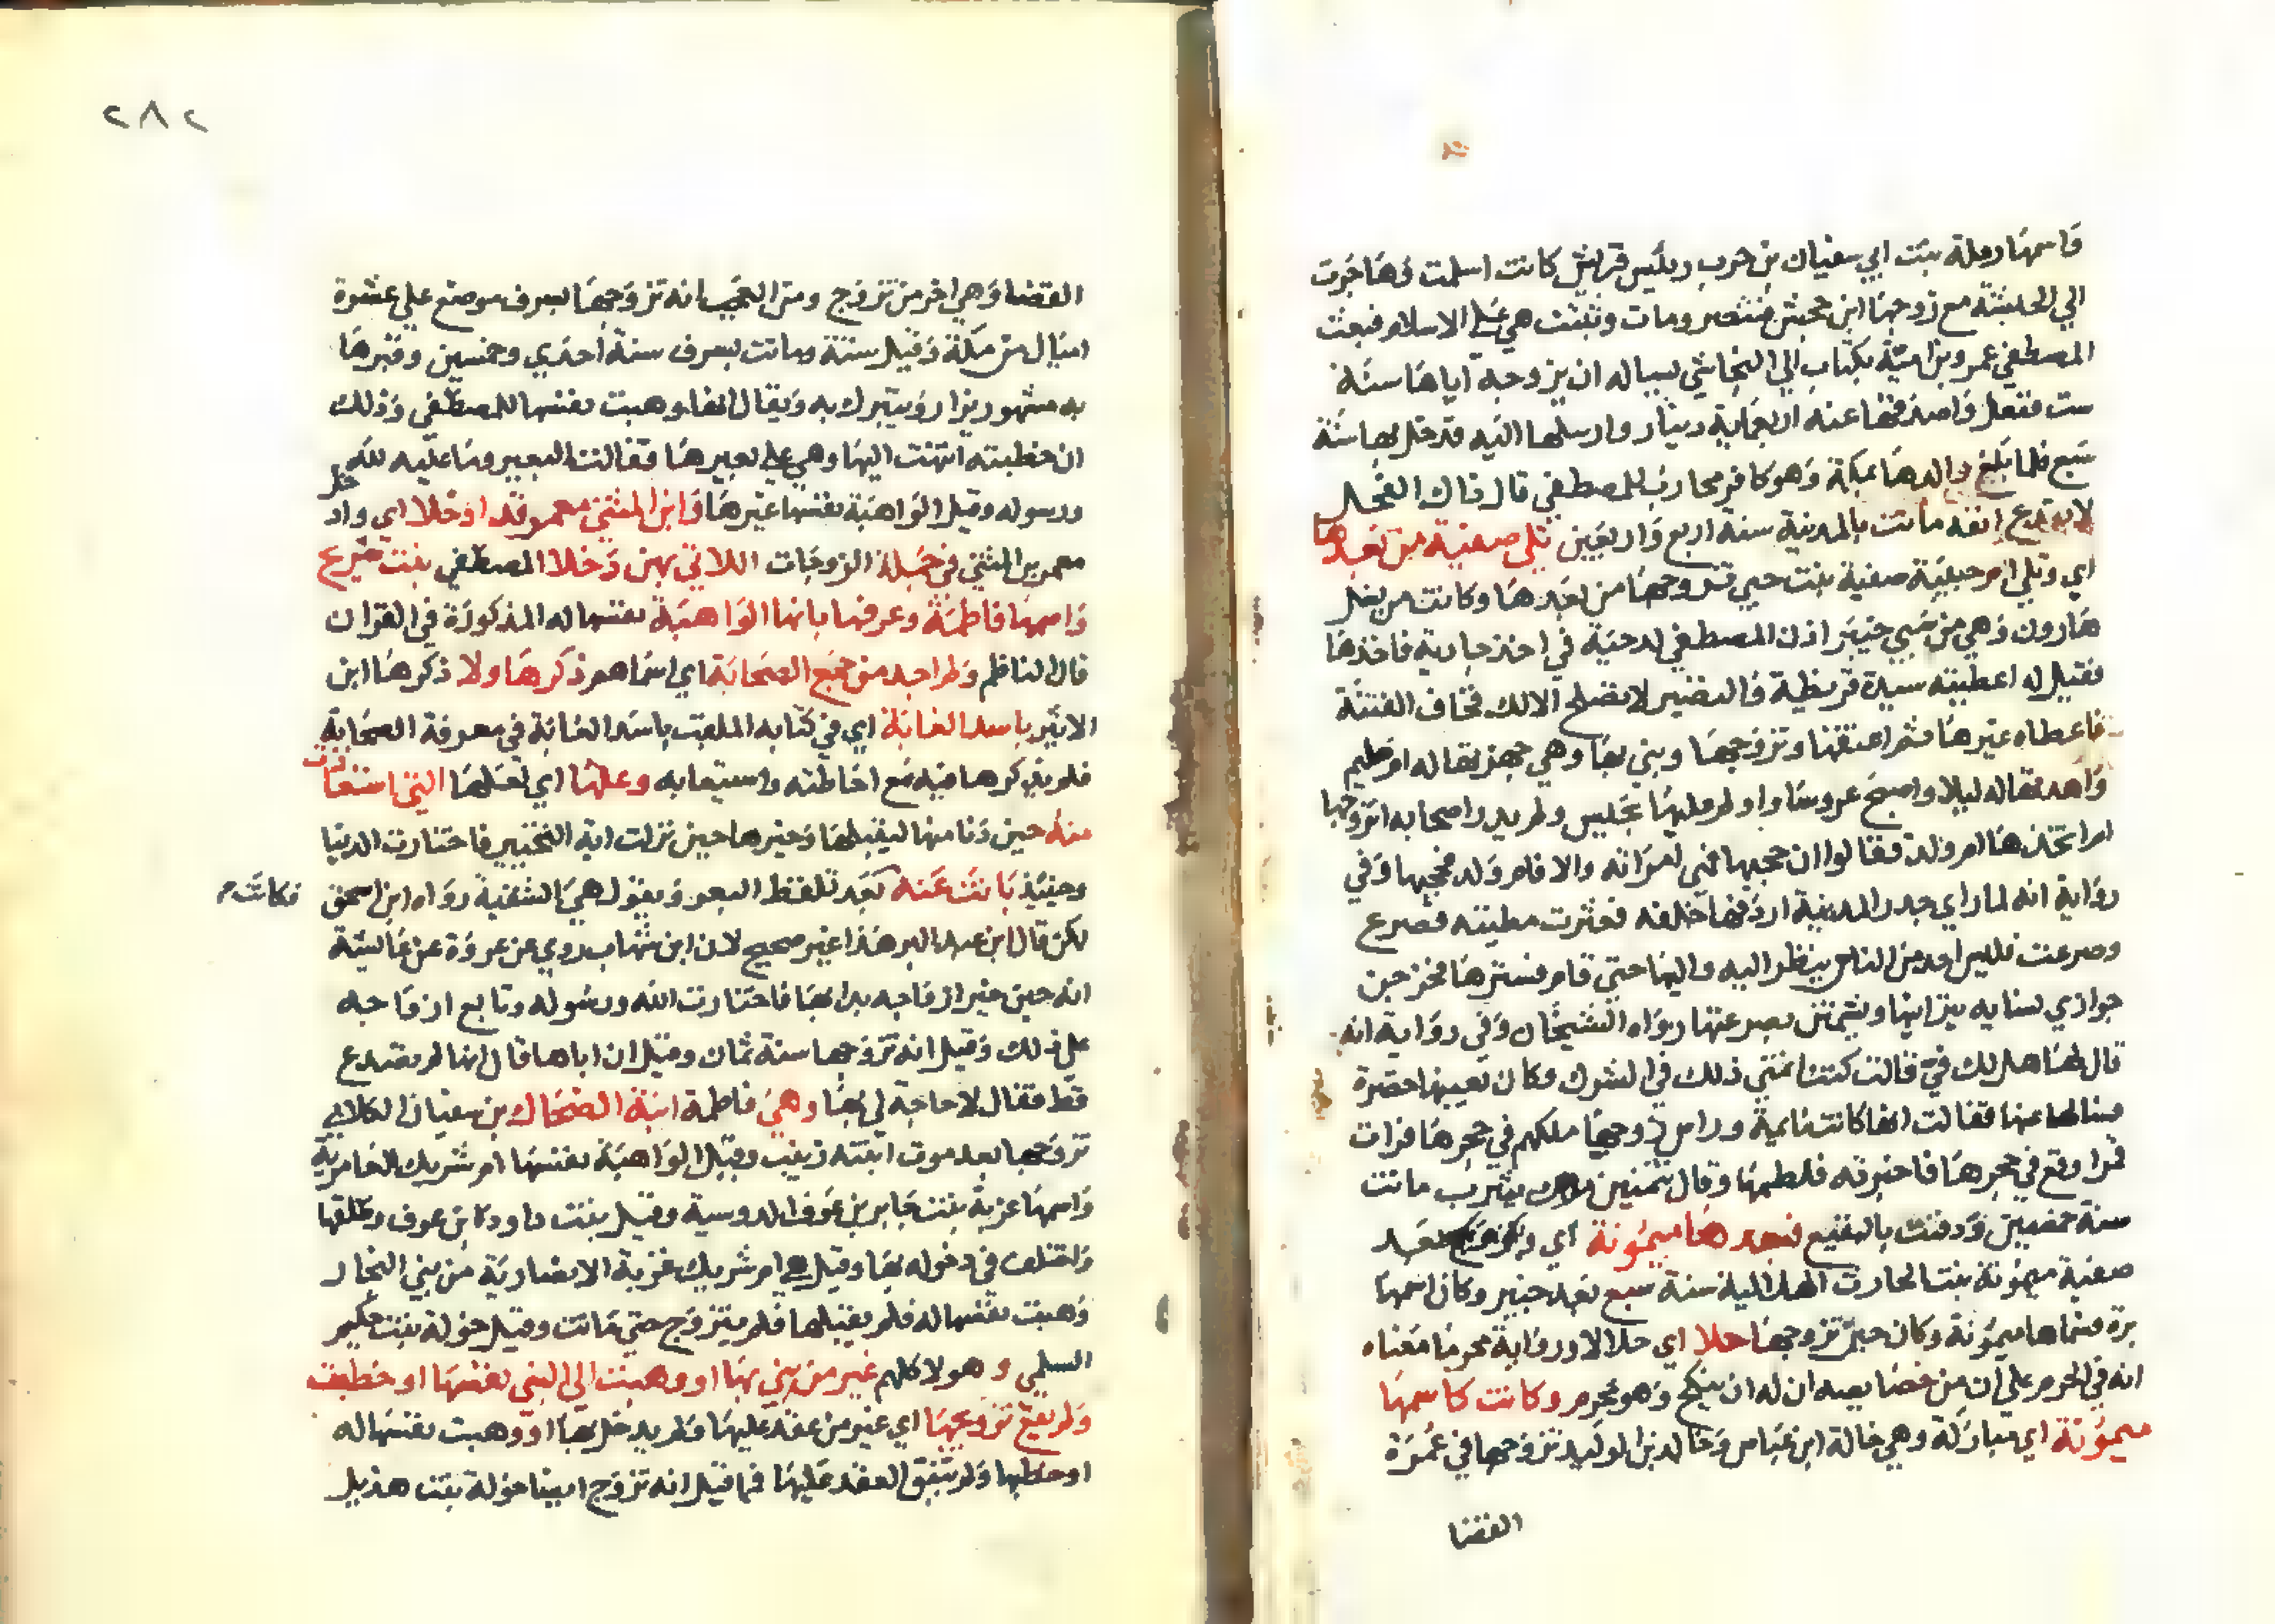 واسمها رملة بنت ابي سفيان بن حرب رئيس قريش كانت اسلمت وهاجرت
الي الحبشة مع زوجها ابن جحش فتنصر ومات وثبتت هي علي الاسلام فبعث
المصطفي عمرو بن امية بكتاب الي النجاشي يساله ان يزوجه اياها سنة
ست ففعل واصدقها عنه اربعماية دينار وارسلها اليه فدخل بها سنة
سبع فلما بلغ والدها بمكة وهو كافر محارب للمصطفي قال ذاك الفحل
لا يقدع انفه ماتت بالمدينة سنة اربع واربعين تلي صفية من بعدها
اي وتلي ام حبيبة صفية بنت حيي تزوجها من بعدها وكانت من نسل
هارون وهي من سبي خيبر اذن المصطفي لدحية في اخذ جارية فاخذها
فقيل له اعطيته سيدة قريظة والنضير لا تصلح الا لك فخاف الفتنة
فاعطاه غيرها ثم اعتقها وتزوجها وبني بها وهي جهزتها له ام سليم
واهدتها له ليلا واصبح عروسا واولم عليها بحيس ولم يدر اصحابه اتزوجها
ام اتخذها ام ولد فقالوا ان حجبها فهي امراته والا فام ولد فحجبها وفي
رواية انه لما راي جدر المدينة اردفها خلفه فعثرت مطيته فصرع
وصرعت فليس احد من الناس ينظر اليه واليها حتي قام فسترها فخرجن
جواري نسايه يتراينها ويشمتن بصرعتها رواه الشيخان وفي رواية انه
قال لها هل لك في قالت كنت اتمني ذلك في الشرك وكان بعينها خضرة
فسالها عنها فقالت انها كانت نايمة وراس زوجها ملكهم في حجرها فرات
قمرا وقع في حجرها فاخبرته فلطمها وقال تتمنين ملك يثرب ماتت
سنة خمسين ودفنت بالبقيع فبعدها ميمونة اي
صفية ميمونة بنت الحارث الهلالية سنة سبع بعد خيبر وكان اسمها
برة فسماها ميمونة وكان حين تزوجها حلا اي حلالا ورواية محرما معناه
انه في الحرم علي ان من خصايصه ان له ان ينكح وهو محرم وكانت كاسمها
ميمونة اي مباركة وهي خالة ابن عباس وخالد بن الوليد تزوجها في عمرة
القضا
٢٨٢
القضا وهي اخر من تزوج ومن العجب انه تزوجها بسرف موضع علي عشرة
اميال من مكة وقيل ستة وماتت بسرف سنة احدي وخمسين وقبرها
به مشهور يزار ويتبرك به ويقال انها وهبت نفسها للمصطفي وذلك
ان خطبته انتهت اليها وهي علي بعيرها فقالت البعير وما عليه لله
ورسوله وقيل الواهبة نفسها غيرها وابن المثني معمر قد ادخلا اي واد
خل
معمر بن المثني في جملة الزوجات اللاتي بهن دخلا المصطفي بنت شريح
واسمها فاطمة وعرفها بانها الواهبة نفسها له المذكورة في القران
قال الناظم ولم اجد من جمع الصحابة اي اسماهم ذكرها ولا ذكرها ابن
الاثير باسد الغابة اي في كتابه الملقب باسد الغابة في معرفة الصحابة
فلم يذكرها فيه مع احاطته واستيعابه وعلها اي لعلها التي استعاذت
منه حين دنا منها ليقبلها وخيرها حين نزلت اية التخيير فاختارت الدنيا
وحينيذ بانت عنه فكانت بعد تلقط البعر وتقول هي الشقية رواه ابن اسحق
لكن قال ابن عبد البر هذا غير صحيح لان ابن شهاب روي عن عروة عن عايشة
انه حين خير ازواجه بدا بها فاختارت الله ورسوله وتابع ازواجه
علي ذلك وقيل انه تزوجها سنة ثمان وقيل ان اباها قال انها لم تصدع
قط فقال لا حاجة لي بها وهي فاطمة ابنة الضحاك بن سفيان الكلابي
تزوجها بعد موت ابنته زينب وقيل الواهبة نفسها ام شريك العامرية
واسمها غزية بنت جابر بن عوف الدوسية وقيل بنت داودان بن عوف وطلقها
واختلف في دخوله بها وقيل هي ام شريك غزية الانصارية من بني النجار
وهبت نفسها له فلم يقبلها فلم تتزوج حتي ماتت وقيل خولة بنت حكيم
السلمي وهولا كلهم غير من بني بها او وهبت الي النبي نفسها او خطبت
ولم يقع تزوجها اي غير من عقد عليها ولم يدخل بها او وهبت نفسها له
او خطبها ولم يتفق العقد عليها فما قيل انه تزوج ايضا خولة بنت هذيل